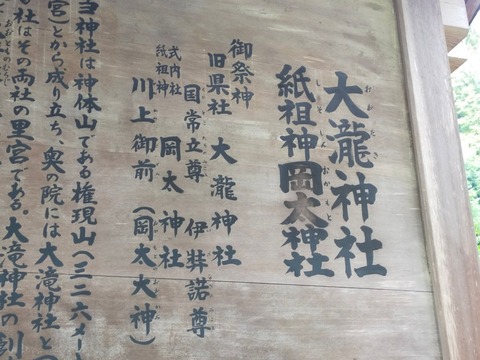 大瀧神社
紙祖神岡太神社
御祭神
旧県社 大瀧神社
国常立尊 伊弉諾尊
式内社
紙祖神 岡太神社
川上御前(岡太大神)
当神社は神体山である権現山(三二六メー
宮)とから成り立ち、奥の院には大滝神社と
社はその両社の里宮である。大滝神社の創